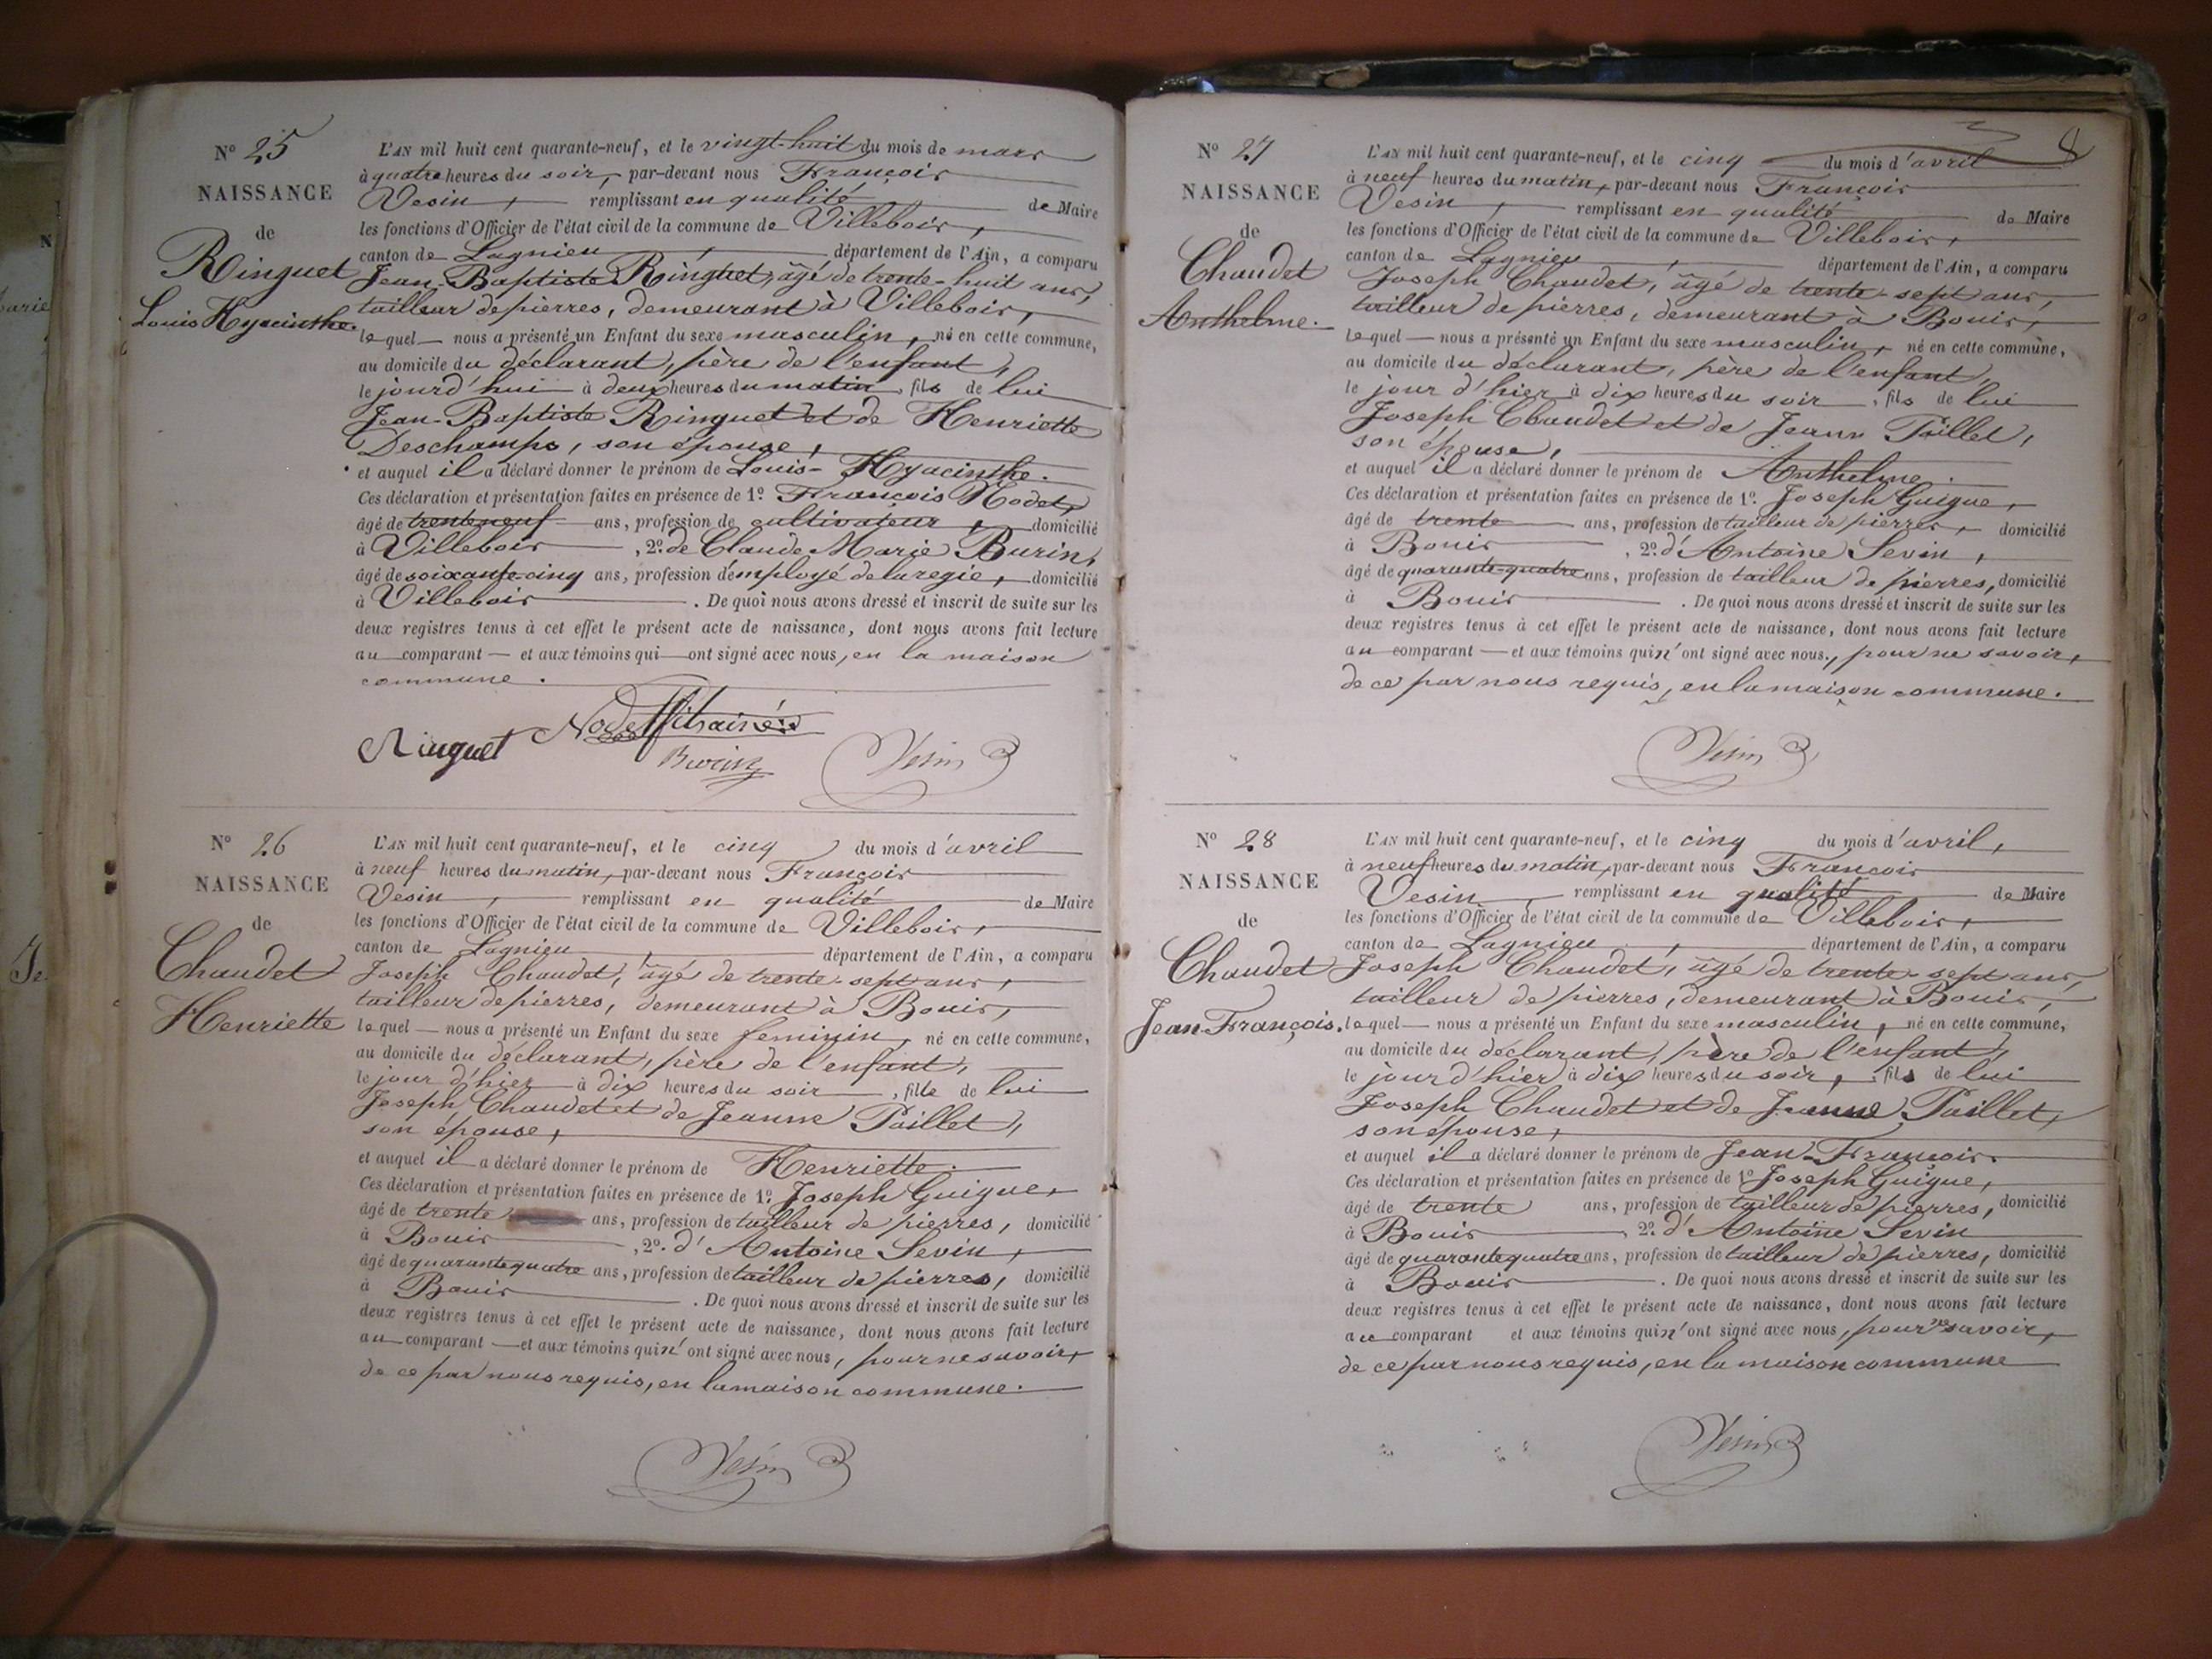 N° 25
NAISSANCE
de
Ringuet
Louis Hyacinthe.
L'AN mil huit cent quarante-neuf, et le vingt-huit du mois de mars
à quatre heures du soir, par-devant nous François
Vesin, remplissant en qualité de Maire
les fonctions d'Officier de l'état civil de la commune de Villebois,
canton de Lagnieu, département de l'Ain, a comparu
Jean-Baptiste Ringuet, âgé de trente-huit ans,
tailleur de pierres, demeurant à Villebois,
lequel nous a présenté un Enfant du sexe masculin, né en cette commune,
au domicile du déclarant, père de l'enfant,
le jourd'hui à deux heures du matin, fils de lui
Jean-Baptiste Ringuet et de Henriette
Deschamps, son épouse,
et auquel il a déclaré donner le prénom de Louis-Hyacinthe.
Ces déclaration et présentation faites en présence de 1° François Nodet,
âgé de trente neuf ans, profession de cultivateur, domicilié
à Villebois, 2° de Claude Marie Burin,
âgé de soixante cinq ans, profession d'employé de la regie, domicilié
à Villebois. De quoi nous avons dressé et inscrit de suite sur les
deux registres tenus à cet effet le présent acte de naissance, dont nous avons fait lecture
au comparant et aux témoins qui ont signé avec nous, en la maison
commune.
Ringuet Nodet Burin Vesin
N° 26
NAISSANCE
de
Chaudet
Henriette
L'AN mil huit cent quarante-neuf, et le cinq du mois d'avril
à neuf heures du matin, par-devant nous François
Vesin, remplissant en qualité de Maire
les fonctions d'Officier de l'état civil de la commune de Villebois,
canton de Lagnieu, département de l'Ain, a comparu
Joseph Chaudet, âgé de trente-sept ans,
tailleur de pierres, demeurant à Bouis,
lequel nous a présenté un Enfant du sexe feminin, né en cette commune,
au domicile du déclarant, père de l'enfant,
le jour d'hier à dix heures du soir, fille de lui
Joseph Chaudet et de Jeanne Paillet,
son épouse,
et auquel il a déclaré donner le prénom de Henriette.
Ces déclaration et présentation faites en présence de 1° Joseph Guigue,
âgé de trente ans, profession de tailleur de pierres, domicilié
à Bouis, 2° d'Antoine Sevin,
âgé de quarante quatre ans, profession de tailleur de pierres, domicilié
à Bouis. De quoi nous avons dressé et inscrit de suite sur les
deux registres tenus à cet effet le présent acte de naissance, dont nous avons fait lecture
au comparant et aux témoins qui n'ont signé avec nous, pour ne savoir,
de ce par nous requis, en la maison commune.
Vesin
8
N° 27
NAISSANCE
de
Chaudet
Anthelme.
L'AN mil huit cent quarante-neuf, et le cinq du mois d'avril
à neuf heures du matin, par-devant nous François
Vesin, remplissant en qualité de Maire
les fonctions d'Officier de l'état civil de la commune de Villebois,
canton de Lagnieu, département de l'Ain, a comparu
Joseph Chaudet, âgé de trente-sept ans,
tailleur de pierres, demeurant à Bouis,
lequel nous a présenté un Enfant du sexe masculin, né en cette commune,
au domicile du déclarant, père de l'enfant,
le jour d'hier à dix heures du soir, fils de lui
Joseph Chaudet et de Jeann Paillet,
son épouse,
et auquel il a déclaré donner le prénom de Anthelme.
Ces déclaration et présentation faites en présence de 1° Joseph Guigue,
âgé de trente ans, profession de tailleur de pierres, domicilié
à Bouis, 2° d'Antoine Sevin,
âgé de quarante-quatre ans, profession de tailleur de pierres, domicilié
à Bouis. De quoi nous avons dressé et inscrit de suite sur les
deux registres tenus à cet effet le présent acte de naissance, dont nous avons fait lecture
au comparant et aux témoins qui n'ont signé avec nous, pour ne savoir,
de ce par nous requis, en la maison commune.
Vesin
N° 28
NAISSANCE
de
Chaudet
Jean-François.
L'AN mil huit cent quarante-neuf, et le cinq du mois d'avril,
à neuf heures du matin, par-devant nous François
Vesin, remplissant en qualité de Maire
les fonctions d'Officier de l'état civil de la commune de Villebois,
canton de Lagnieu, département de l'Ain, a comparu
Joseph Chaudet, âgé de trente-sept ans,
tailleur de pierres, demeurant à Bouis,
lequel nous a présenté un Enfant du sexe masculin, né en cette commune,
au domicile du déclarant, père de l'enfant,
le jour d'hier à dix heures du soir, fils de lui
Joseph Chaudet et de Jeanne Paillet,
son épouse,
et auquel il a déclaré donner le prénom de Jean-François.
Ces déclaration et présentation faites en présence de 1° Joseph Guigue,
âgé de trente ans, profession de tailleur de pierres, domicilié
à Bouis, 2° d'Antoine Sevin
âgé de quarante quatre ans, profession de tailleur de pierres, domicilié
à Bouis. De quoi nous avons dressé et inscrit de suite sur les
deux registres tenus à cet effet le présent acte de naissance, dont nous avons fait lecture
au comparant et aux témoins qui n'ont signé avec nous, pour ne savoir,
de ce par nous requis, en la maison commune
Vesin